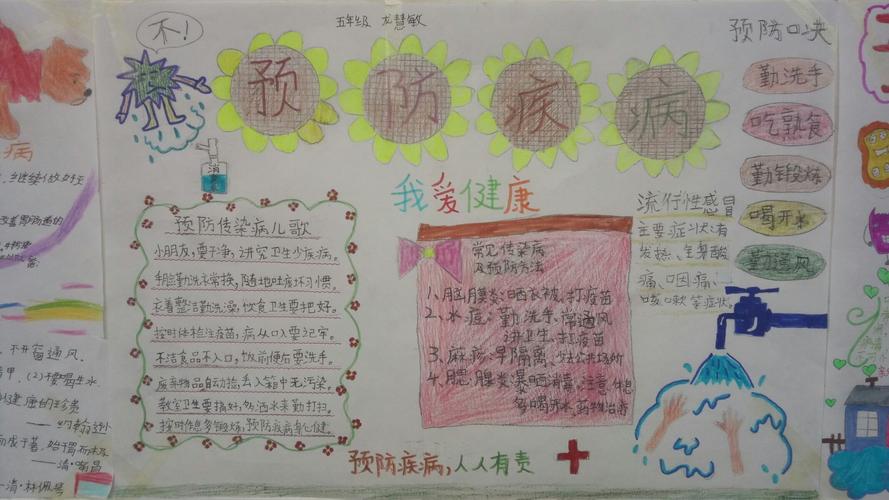 病
五年级 龙慧敏
不!
预防疾病
消
我爱健康
预防传染病儿歌
小朋友,要干净,讲究卫生少疾病。
手脸勤洗衣常换,随地吐痰坏习惯。
衣着整洁勤洗澡,饮食卫生要把好。
按时体检注疫苗,病从口入要记牢。
不洁食品不入口,饭前便后要洗手。
废弃物品自动捡,丢入箱中无污染。
教室卫生要搞好,勿洒水来勤打扫。
按时作息多锻炼,预防疾病身心健。
常见传染病
及预防方法
1、脑膜炎:晒衣被、打疫苗
2、水痘:勤洗手、常通风
讲卫生、打疫苗
3、麻疹:早隔离、公共场所
4、腮腺炎:暴晒消毒、注意休息
多喝开水、药物治疗
预防口决
勤洗手
吃熟食
勤锻炼
喝开水
勤通风
流行性感冒
主要症状:有
发热、全身酸
痛、咽痛、
咳嗽等症状。
预防疾病,人人有责